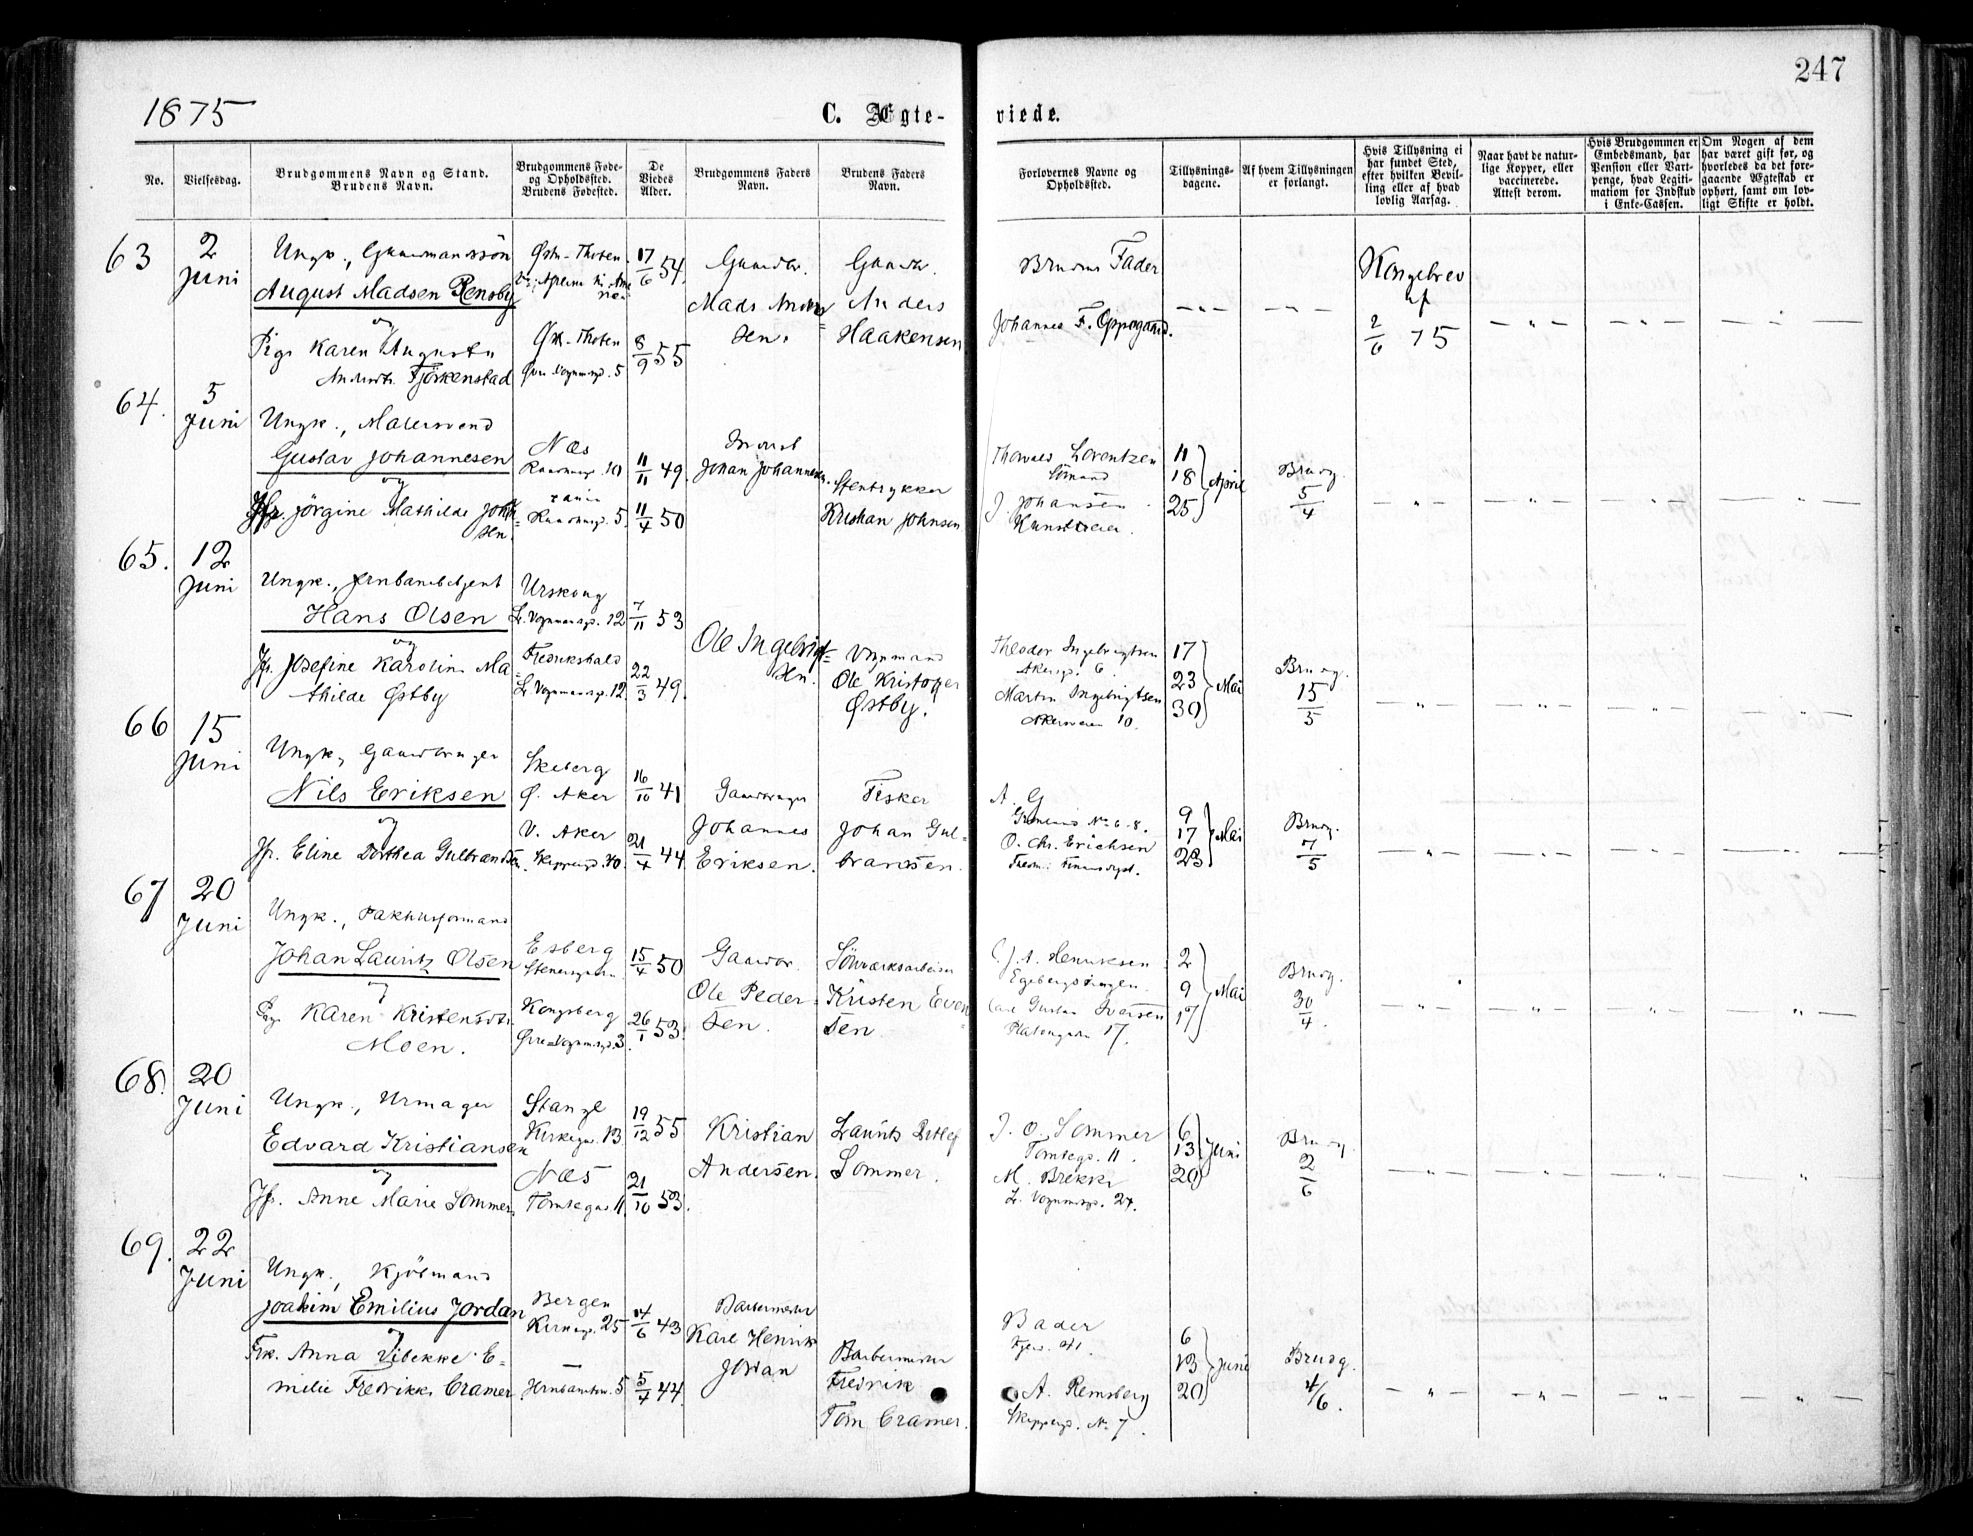 247
1875
C. Ægte-
viede.
No.
Vielsesdag.
Brudgommens Navn og Stand.
Brudens Navn.
Brudgommens Føde-
og Opholdssted.
Brudens Fødested.
De
Viedes
Alder.
Brudgommens Faders
Navn.
Brudens Faders
Navn.
Forlovernes Navne og
Opholdssted.
Tillysnings-
dagene.
Af hvem Tillysningen
er forlangt.
Hvis Tillysning ei
har fundet Sted,
efter hvilken Bevil-
ling eller af hvad
lovlig Aarsag.
Naar havt de natur-
lige Kopper, eller
vaccinerede.
Attest derom.
Hvis Brudgommen er
Embedsmand, har
Pension eller Vart-
penge, hvad Legiti-
mation for Indskud
i Enke-Cassen.
Om Nogen af dem
har været gift før, og
hvorledes da det fore-
gaaende Ægteskab er
ophørt, samt om lov-
ligt Skifte er holdt.
63
2
Juni
Ungk., Gaardmandssön
August Madsen Rensby
og
Pige Karen Augusta
Fjörkenstad
Østr. Thoten
17/6 54.
Øst. Thoten
8/9 55
Gaardbr.
Mads Ander=
sen.
Gaardbr.
Anders
Haakensen
Brudens Fader
Johannes F. Oppegaard.
Kongebrev
af
2/6 75
64.
5
Juni
Ungk., Malersvend
Gustav Johannesen
og
Jfr. Jörgine Mathilde John=
sen.
Næs
10
11/11 49.
5.
11/4 50
Johan Johannesen.
Stentrykker
Kristian Johnsen
Thomas Lorentzen
Sömand
J. Johansen
11
18
25
April
Brudg.
5/4
65.
12
Juni
Ungk., Jernbanebetjent
Hans Olsen
og
Jfr. Josefine Karoline Ma=
thilde Østby
Urskoug
L. Vognmansg. 12
7/11 53
Fredrikshald
L. Vognmansg. 12.
22/3 49.
Ole Ingebrigt=
sen.
Vognmand
Ole Kristoffer
Østby.
Theodor Ingebrigtsen
Akersg. 6.
Martin Ingebrigtsen
Akersveien 10.
17
23
30
Mai
Brudg.
15/5
66
15
Juni
Ungk., Gaardbruger
Nils Eriksen
og
Jfr. Eline Dorthea Gulbrandsen.
Skeberg
Ø. Aker
16/10 41
V. Aker
Skipperg. 40.
21/4 44
Gaardbruger
Johannes
Eriksen.
Fisker
Johan Gul=
brandsen.
A. G
No 6-8.
O. Chr. Erichsen
9
17
23
Mai
Brudg.
7/5
67
20
Juni
Ungk., Pakhusformand
Johan Lauritz Olsen
og
Pige Karen Kristensdtr.
Moen.
Esberg
15/4 50
Kongsberg
Øvre Vognmsg. 3.
26/1 53.
Gaardbr.
Ole Peder=
sen.
Sölvværksarbeider
Kristen Even=
sen.
Henriksen
Egebergsløngen.
Carl Gustav Iversen
Platousgaden 17.
2
9
17
Mai
Brudg.
30/4.
68.
20
Juni
Ungk., Urmager
Edvard Kristiansen
og
Jfr. Anne Marie Sommer.
Stange
Kirkegd. 13.
19/12 55
Næs
Tomtegd. 11.
21/10 53.
Kristian
Andersen.
Laurits Detlef
Sommer.
J. O. Sommer
Tomtegd. 11.
M. Brekke
L. Vognmsg. 24.
6
13
20
Juni
Brudg.
2/6
69.
22
Juni
Ungk., Kjöbmand
Joakim Emilius Jordan
og
Frk. Anna Vibekke E=
milie Fredrikke Cramer
Bergen
Kirkeg. 25
14/6 43
5
5/4 44.
Barbermester
Karl Henrik
Jordan
Barbermester
Fredrik
Tom Cramer.
Bader
41.
A. Remsberg
Skipperg. No 7.
6
13
20
Juni
Brudg.
4/6.